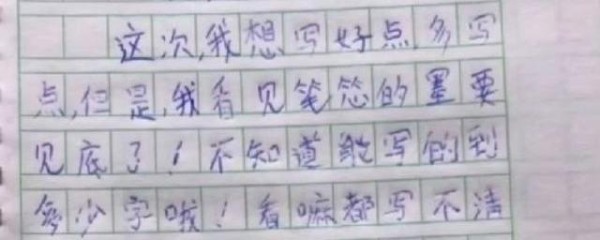 这次,我想写好点,多写
点,但是,我看见笔芯的墨要
见底了!不知道能写的到
多少字哦!看嘛都写不清